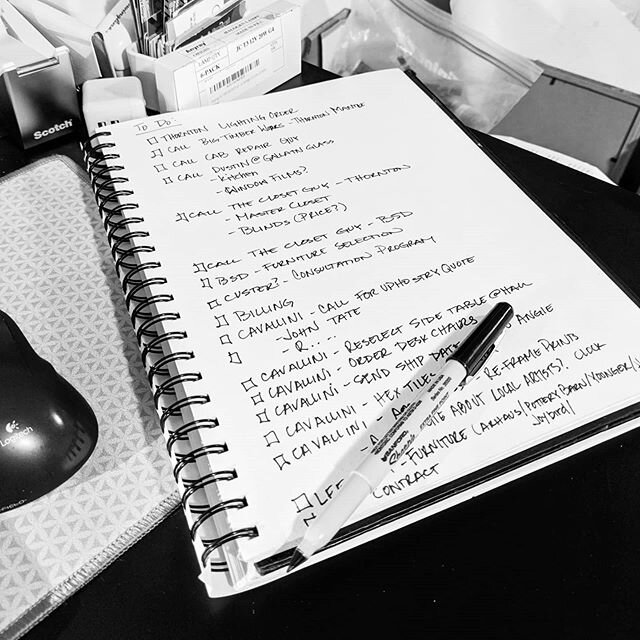 Scotch
6-PACK
TO DO:
THORNTON LIGHTING ORDER
CALL BIG TIMBER WORKS - THORNTON MANTLE
CALL CAB REPAIR GUY
CALL DUSTIN @ GALATIN GLASS
- KITCHEN
- WINDOW FILMS?
CALL THE CLOSET GUY - THORNTON
- MASTER CLOSET
- BLINDS (PRICE?)
CALL THE CLOSET GUY - BSD
BSD - FURNITURE SELECTION
CUSTER? - CONSULTATION PROGRAM
BILLING
CAVALLINI - CALL FOR UPHOLSTRY QUOTE
- JOHN TATE
- R....
CAVALLINI - RESELECT SIDE TABLE @ HALL
CAVALLINI - ORDER DESK CHAIRS
CAVALLINI - SEND SHIP DATE ANGIE
CAVALLINI - HEX TILE
CAVALLINI - RE-FRAME PRINTS
ABOUT LOCAL ARTISTS? CLICK
LEE - FURNITURE (ARHAUS/POTTERY BARN/YOUNGER/
JOYBIRD/
CONTRACT
Logitech